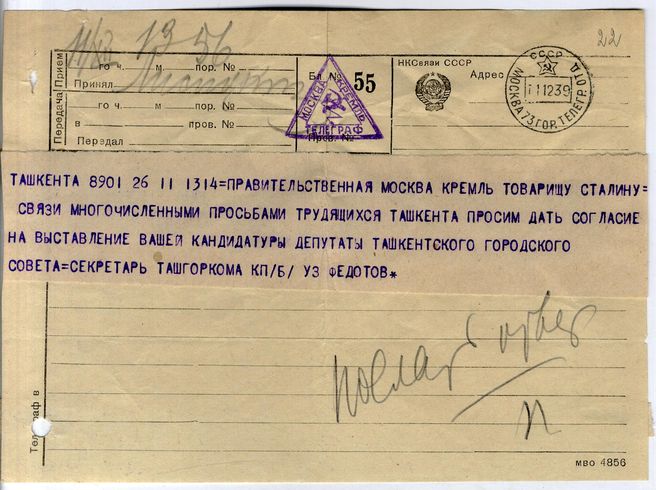 22
11/XII 13 56
Прием
го ч. м. пор. №
Принял
Бл. № 55
МОСКВА КРЕМЛЬ ТЕЛЕГРАФ
Пров. №
НКСвязи СССР
Адрес
СССР МОСКВА 73 ГОР. ТЕЛЕГР. ОТД.
11 12 39
Передача
го ч. м. пор. №
в пров. №
Передал
ТАШКЕНТА 8901 26 11 1314=ПРАВИТЕЛЬСТВЕННАЯ МОСКВА КРЕМЛЬ ТОВАРИЩУ СТАЛИНУ=
СВЯЗИ МНОГОЧИСЛЕННЫМИ ПРОСЬБАМИ ТРУДЯЩИХСЯ ТАШКЕНТА ПРОСИМ ДАТЬ СОГЛАСИЕ
НА ВЫСТАВЛЕНИЕ ВАШЕЙ КАНДИДАТУРЫ ДЕПУТАТЫ ТАШКЕНТСКОГО ГОРОДСКОГО
СОВЕТА=СЕКРЕТАРЬ ТАШГОРКОМА КП/Б/ УЗ ФЕДОТОВ*
Телеграф в
МВО 4856